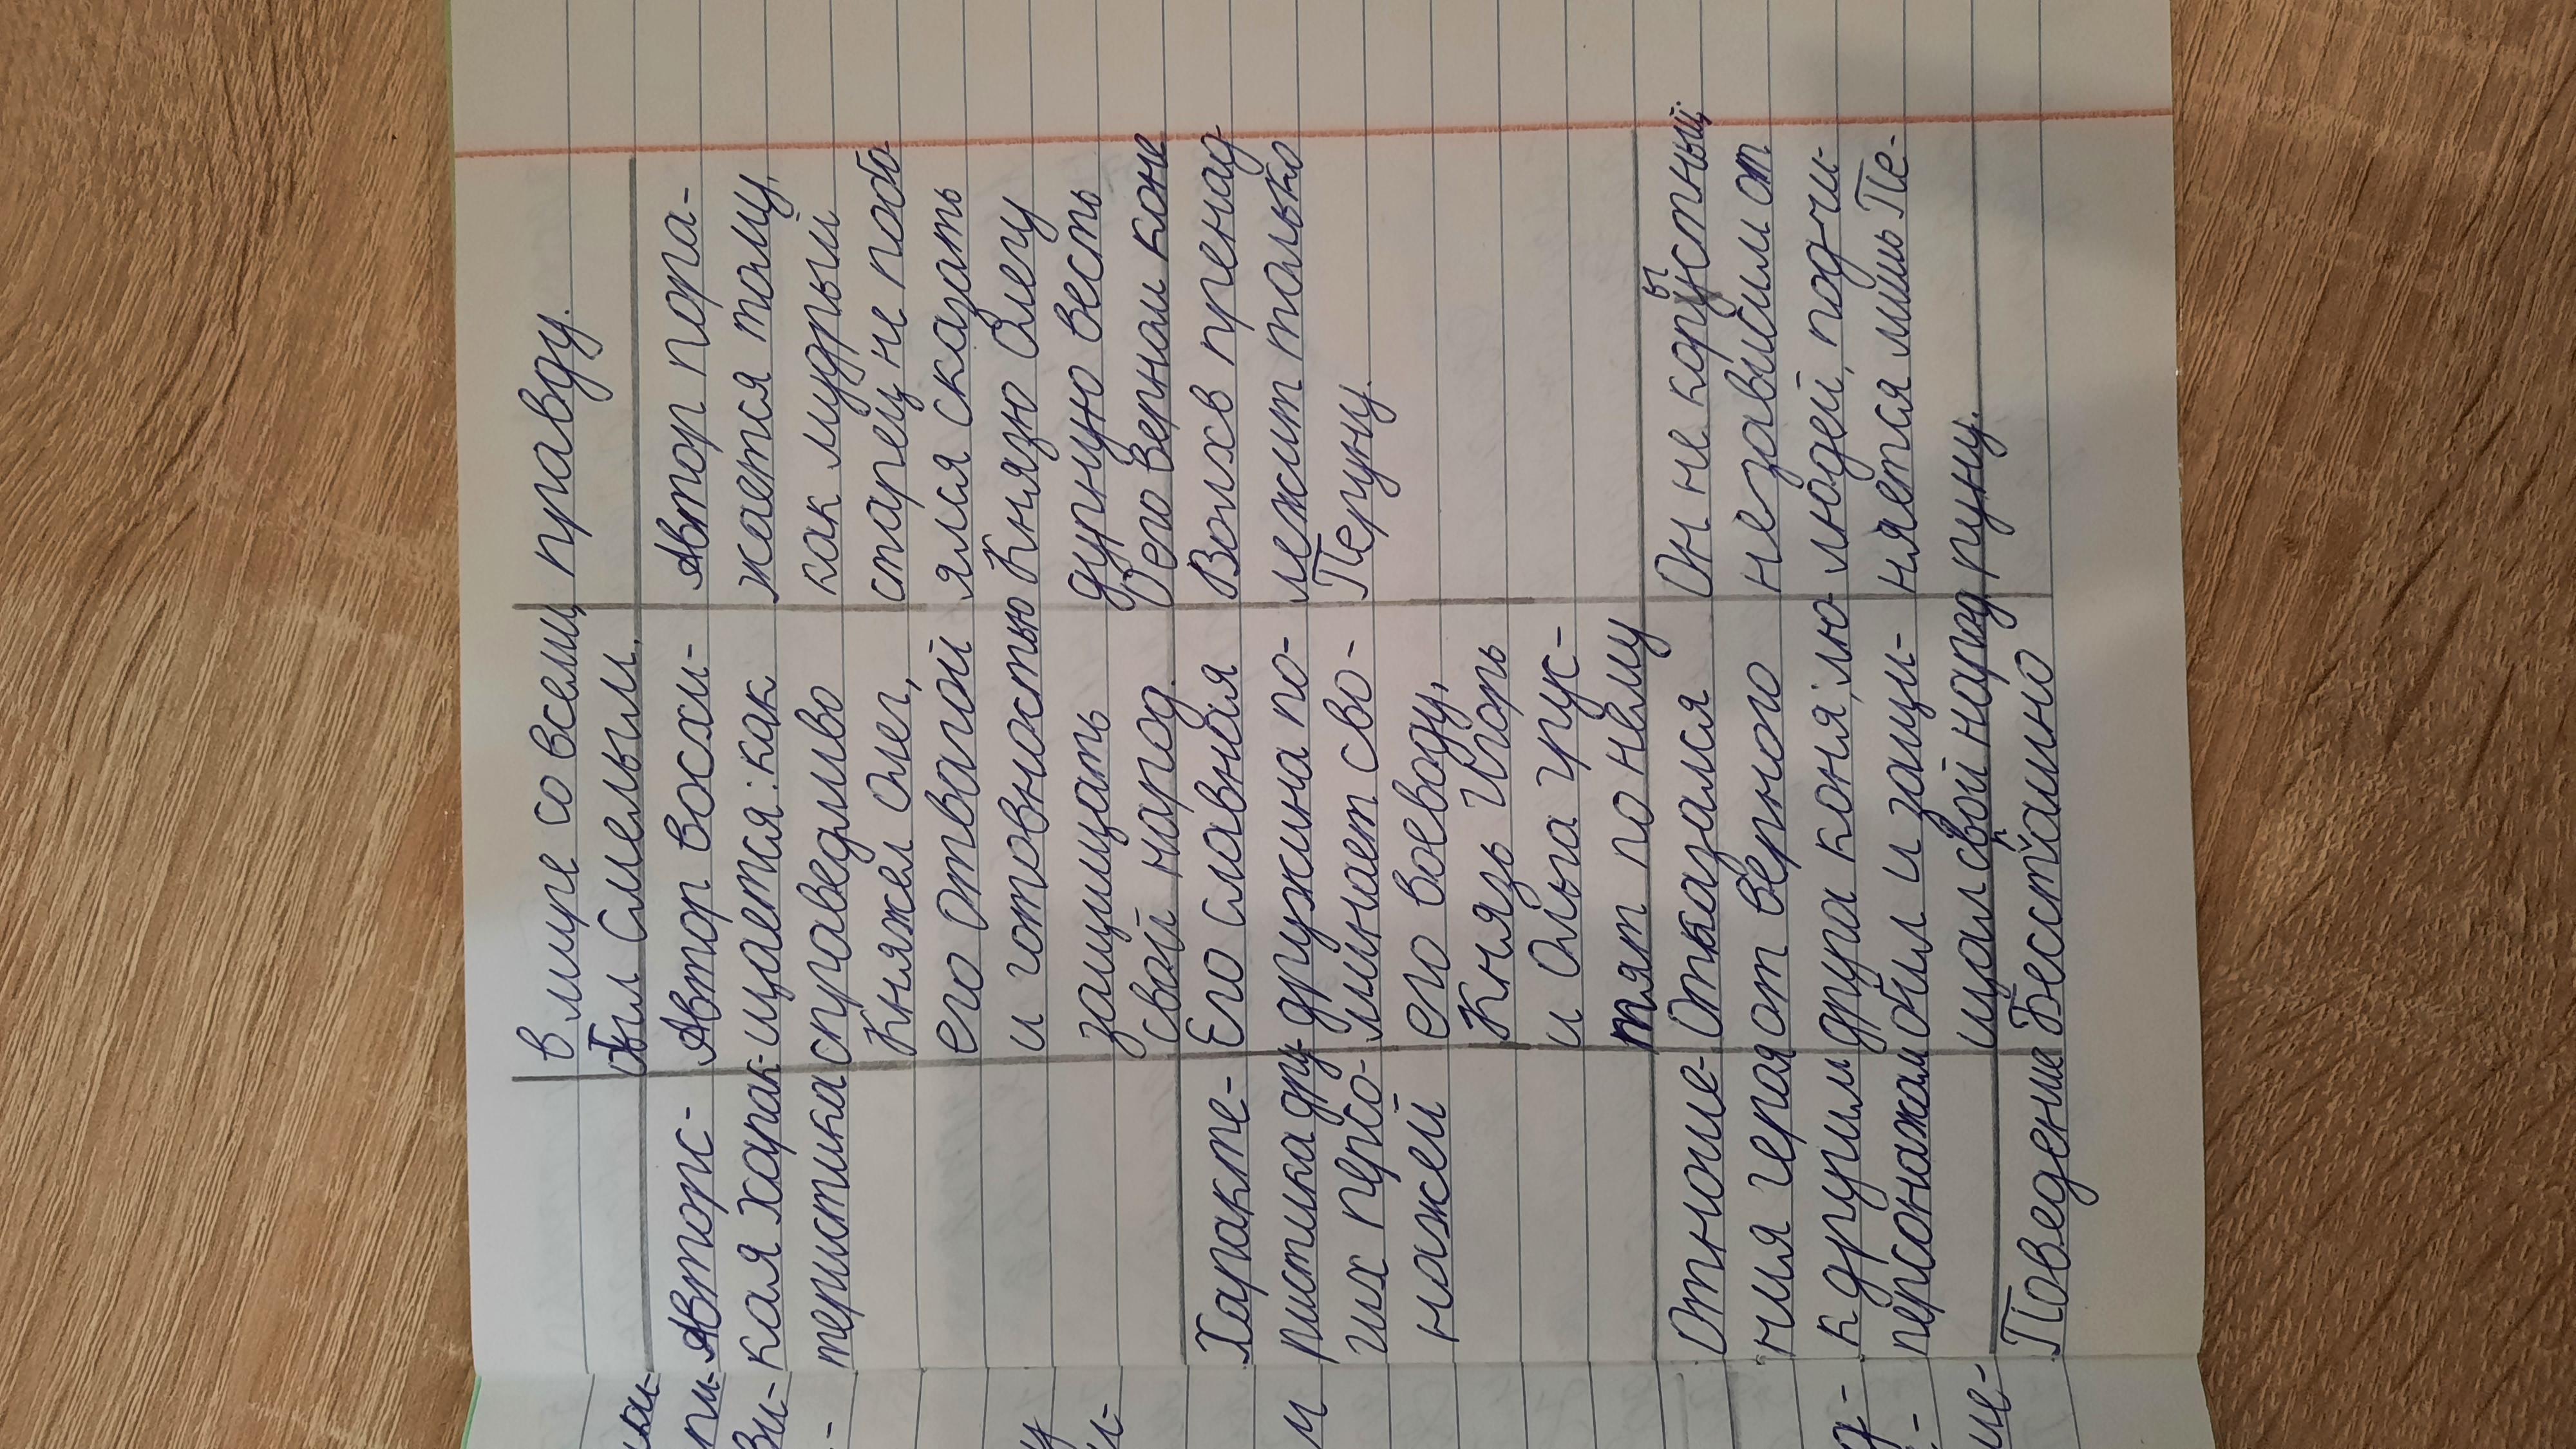 в мире со всеми,
был смелым.
правду.
Авторс-
кая харак-
теристика
Автор восхи-
щается: как
справедливо
Княжел Олег,
его отвагой
и готовностью
защищать
свой народ.
Автор пора-
жается тому,
как мудрый
старец не побо
ялся сказать
Князю Олегу
дурную весть
О его верном коне
Волхв пренад
лежит только
Перуну.
Характе-
ристика дру-
гих персо-
нажей
Его славная
дружина по-
минает сво-
его воеводу,
Князь Игорь
и Ольга грус-
тят по нему
Отноше-
ния героя
к другим
персонажам
Отказался
от верного
друга коня, лю-
бил и защи-
щал свой народ.
Он не корыстный,
не зависим от
людей, подчи-
няется лишь Пе-
руну.
Поведение
Бесстрашно